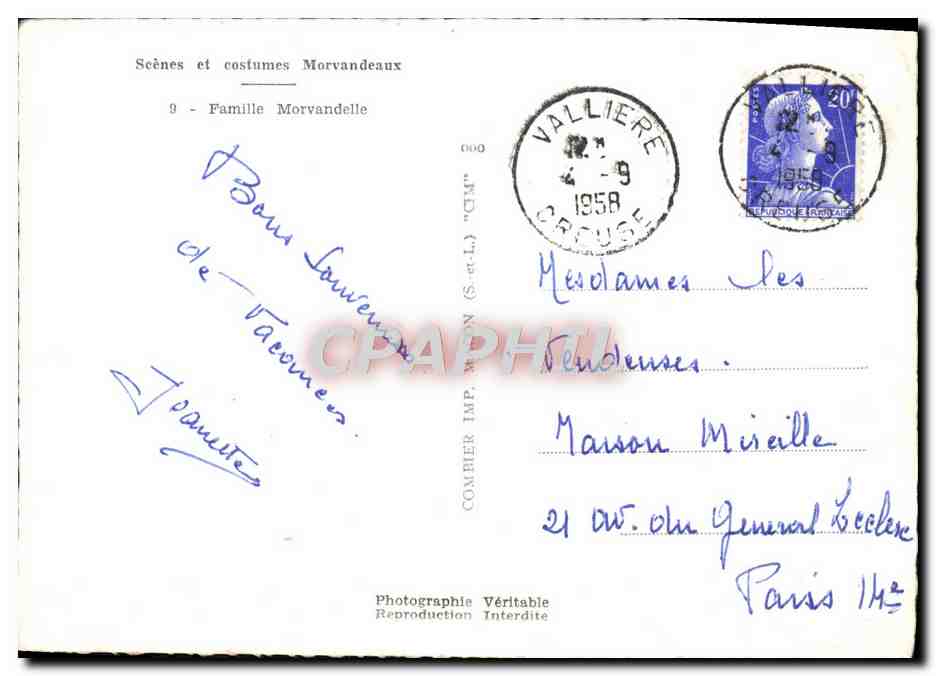 Scènes et costumes Morvandeaux
9 - Famille Morvandelle
Bons Souvenirs
de - Vacances.
000
COMBIER IMP. MACON (S.-et-L.) "CIM"
VALLIERE
12 H
4 - 9
1958
CREUSE
POSTES
20F
REPUBLIQUE FRANÇAISE
VALLIERE
12 H
4 - 9
1958
CREUSE
Mesdames les
Vendeuses.
Maison Mireille
21 av. du General Leclerc
Paris 14e
CPAPHIL
Photographie Véritable
Reproduction Interdite